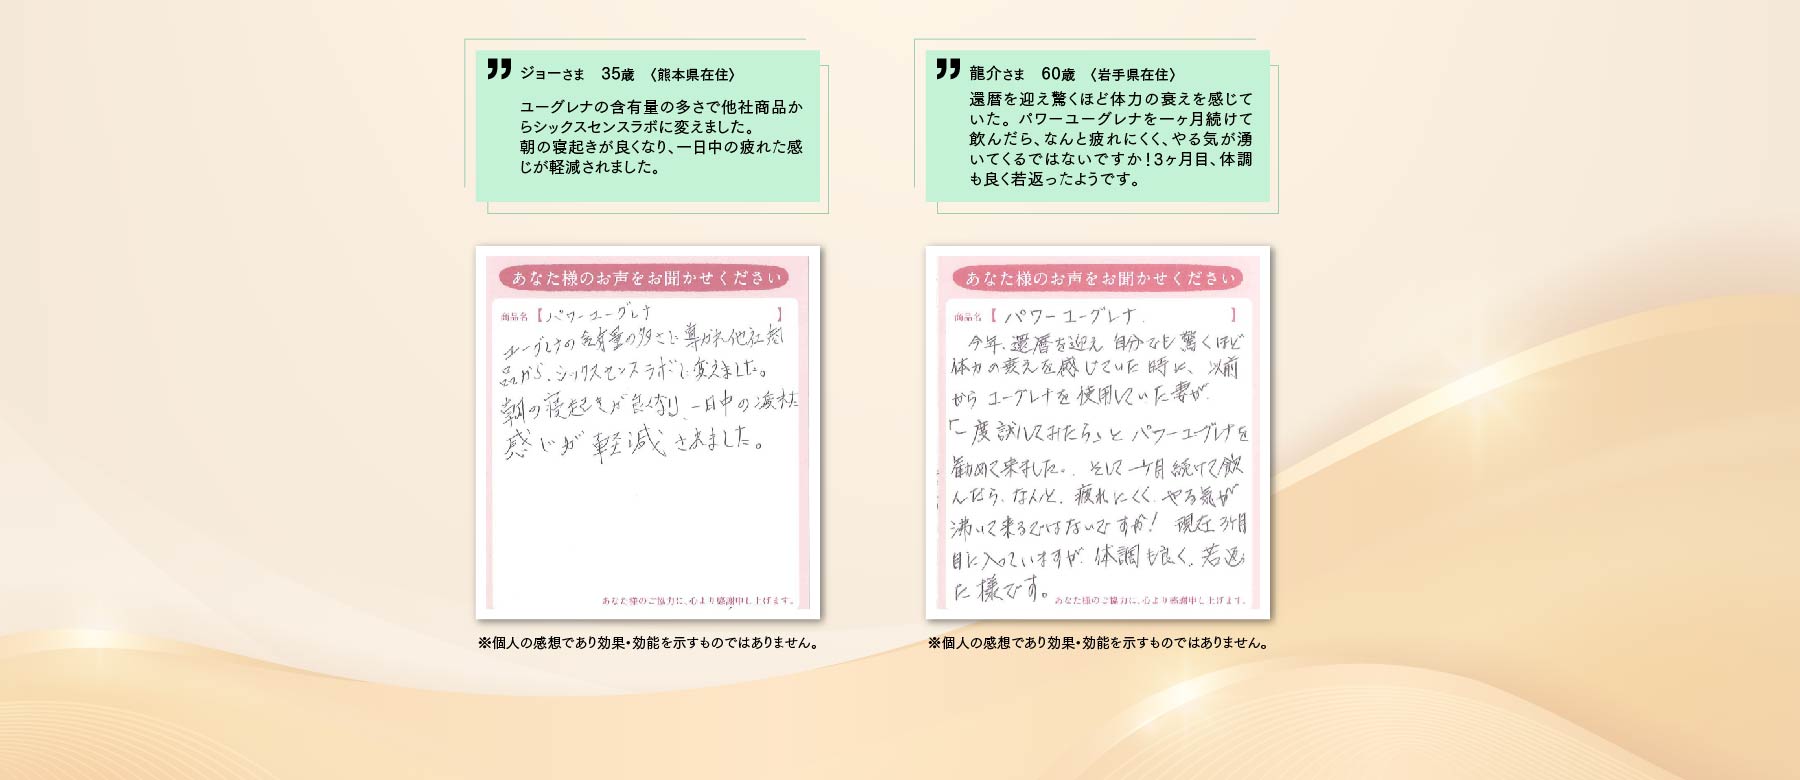 ジョーさま 35歳 〈熊本県在住〉
ユーグレナの含有量の多さで他社商品か
らシックスセンスラボに変えました。
朝の寝起きが良くなり、一日中の疲れた感
じが軽減されました。
龍介さま 60歳 〈岩手県在住〉
還暦を迎え驚くほど体力の衰えを感じて
いた。パワーユーグレナを一ヶ月続けて
飲んだら、なんと疲れにくく、やる気が湧
いてくるではないですか！3ヶ月目、体調
も良く若返ったようです。
あなた様のお声をお聞かせください
商品名【パワーユーグレナ】
ユーグレナの含有量の多さに導かれ他社商
品から、シックスセンスラボに変えました。
朝の寝起きが良くなり、一日中の疲れた
感じが軽減されました。
あなた様のご協力に、心より感謝申し上げます。
※個人の感想であり効果・効能を示すものではありません。
あなた様のお声をお聞かせください
商品名【パワーユーグレナ】
今年、還暦を迎え自分でも驚くほど
体力の衰えを感じていた時に、以前
からユーグレナを使用していた妻が、
「一度試してみたら」とパワーユーグレナを
勧めて来ました。そして一ヶ月続けて飲
んだら、なんと、疲れにくく、やる気が
沸いて来るではないですか！現在3ヶ月
目に入っていますが、体調も良く、若返っ
た様です。
あなた様のご協力に、心より感謝申し上げます。
※個人の感想であり効果・効能を示すものではありません。